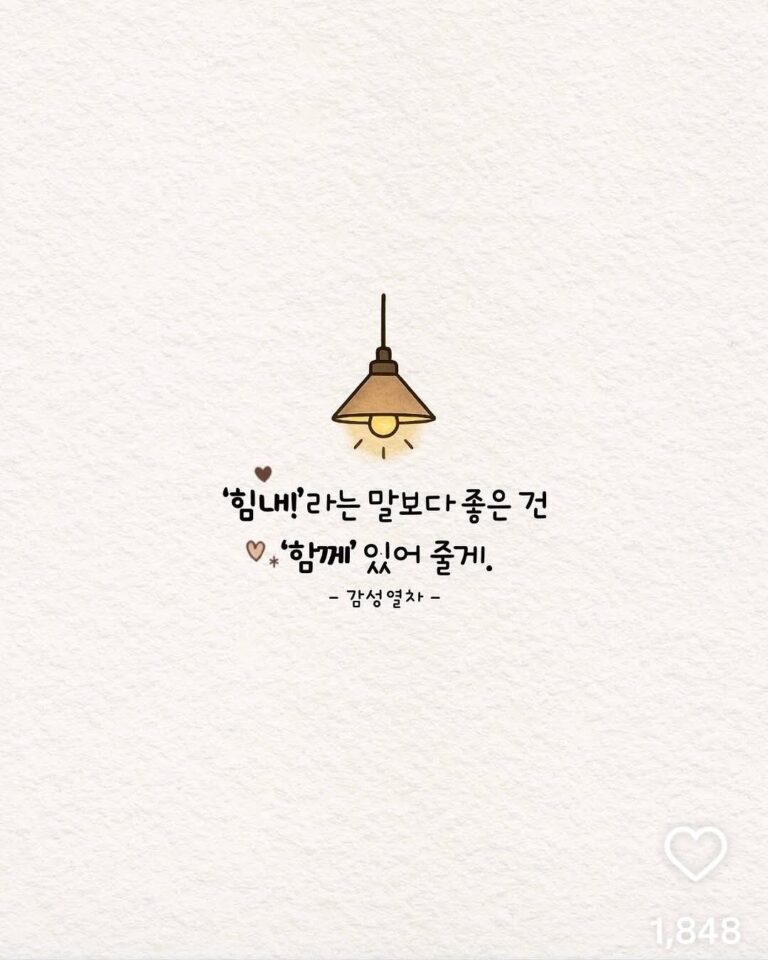 '힘내!'라는 말보다 좋은 건
'함께' 있어 줄게.
- 감성열차 -
1,848